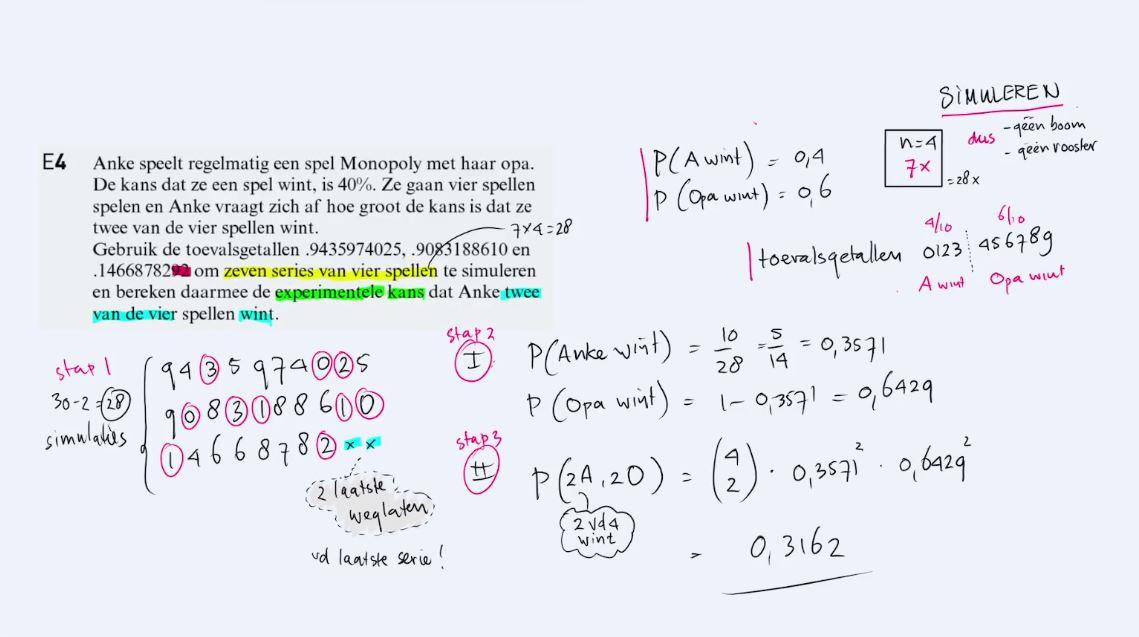 SIMULEREN
n=4
7x
= 28 x
dus - géén boom
- géén rooster
E4 Anke speelt regelmatig een spel Monopoly met haar opa.
De kans dat ze een spel wint, is 40%. Ze gaan vier spellen
spelen en Anke vraagt zich af hoe groot de kans is dat ze
twee van de vier spellen wint.
Gebruik de toevalsgetallen .9435974025, .9083188610 en
.1466878292 om zeven series van vier spellen te simuleren
en bereken daarmee de experimentele kans dat Anke twee
van de vier spellen wint.
7x4=28
P(A wint) = 0,4
P (Opa wint) = 0,6
4/10 6/10
toevalsgetallen 0123 456789
A wint Opa wint
stap 1
30-2=28
simulaties
9435974025
9083188610
14668782xx
2 laatste
weglaten
vd laatste serie!
stap 2
I P(Anke wint) = 10/28 = 5/14 = 0,3571
P (Opa wint) = 1 - 0,3571 = 0,6429
stap 3
II P(2A, 2O) = (4 2) · 0,3571² · 0,6429²
2 vd 4
wint
= 0,3162